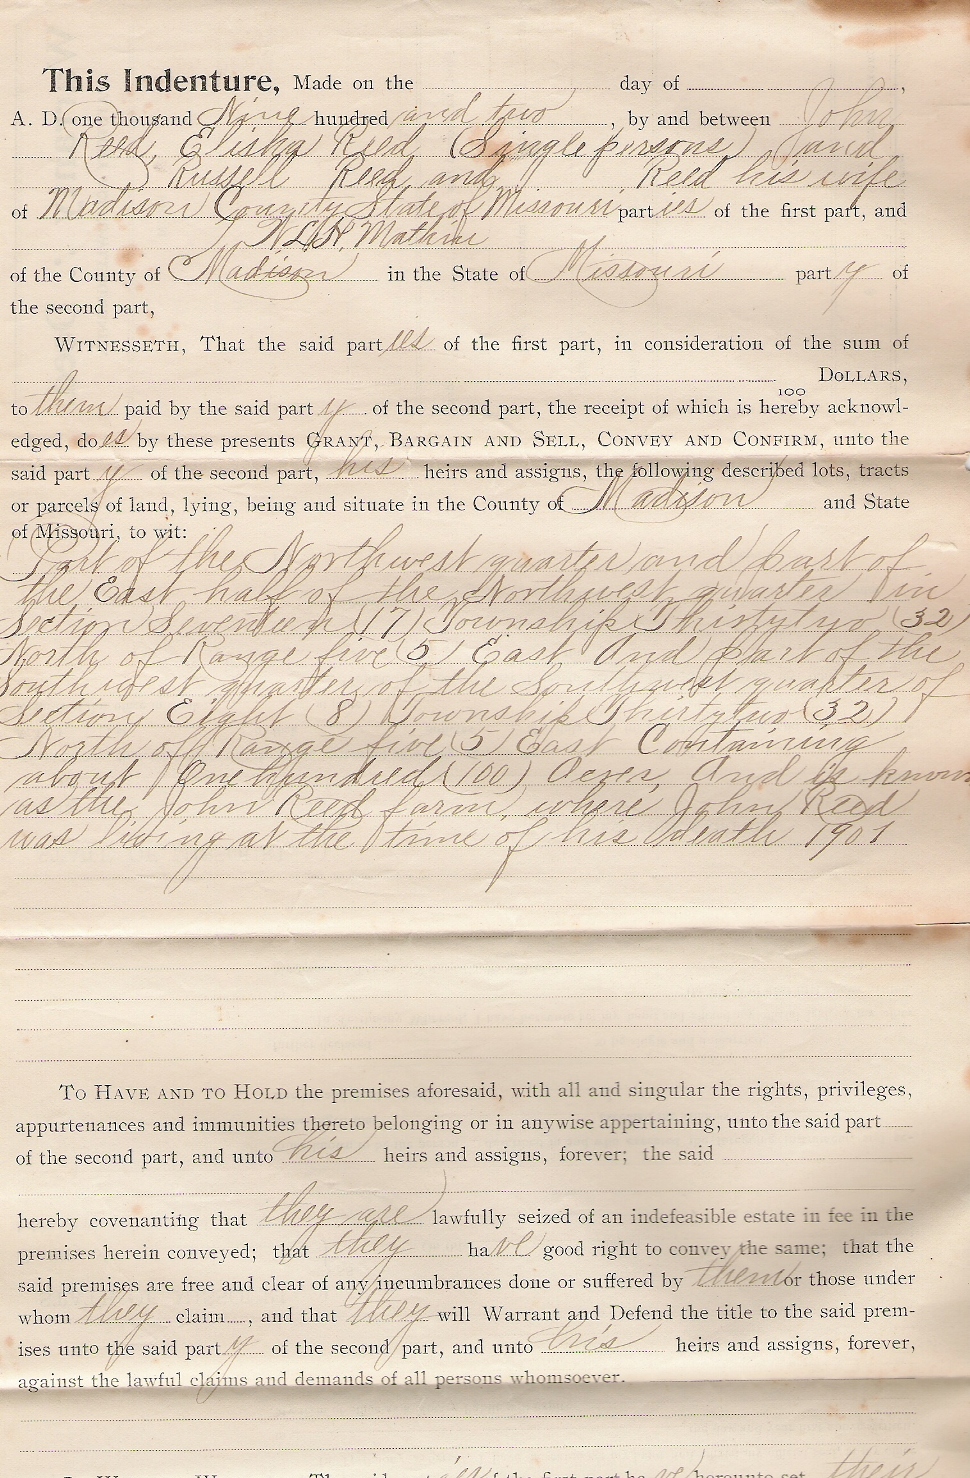 This Indenture, Made on the day of ,
A. D. one thousand Nine hundred and two , by and between John
Reed, Elisha Reed, (Single persons) and
Russell Reed and Reed his wife
of Madison County State of Missouri parties of the first part, and
N. L. H. Mathis
of the County of Madison in the State of Missouri party of
the second part,
WITNESSETH, That the said parties of the first part, in consideration of the sum of
100 DOLLARS,
to them paid by the said party of the second part, the receipt of which is hereby acknowl-
edged, does by these presents GRANT, BARGAIN AND SELL, CONVEY AND CONFIRM, unto the
said party of the second part, his heirs and assigns, the following described lots, tracts
or parcels of land, lying, being and situate in the County of Madison and State
of Missouri, to wit:
Part of the Northwest quarter and part of
the East half of the Northwest quarter in
Section Seventeen (17) Township Thirtytwo (32)
North of Range five (5) East And part of the
Southwest quarter of the Southwest quarter of
Section Eight (8) Township Thirtytwo (32)
North of Range five (5) East Containing
about One hundred (100) Acres, And is known
as the John Reed farm, where John Reed
was living at the time of his death 1901
TO HAVE AND TO HOLD the premises aforesaid, with all and singular the rights, privileges,
appurtenances and immunities thereto belonging or in anywise appertaining, unto the said part
of the second part, and unto his heirs and assigns, forever; the said
hereby covenanting that they are lawfully seized of an indefeasible estate in fee in the
premises herein conveyed; that they have good right to convey the same; that the
said premises are free and clear of any incumbrances done or suffered by them or those under
whom they claim , and that they will Warrant and Defend the title to the said prem-
ises unto the said party of the second part, and unto his heirs and assigns, forever,
against the lawful claims and demands of all persons whomsoever.